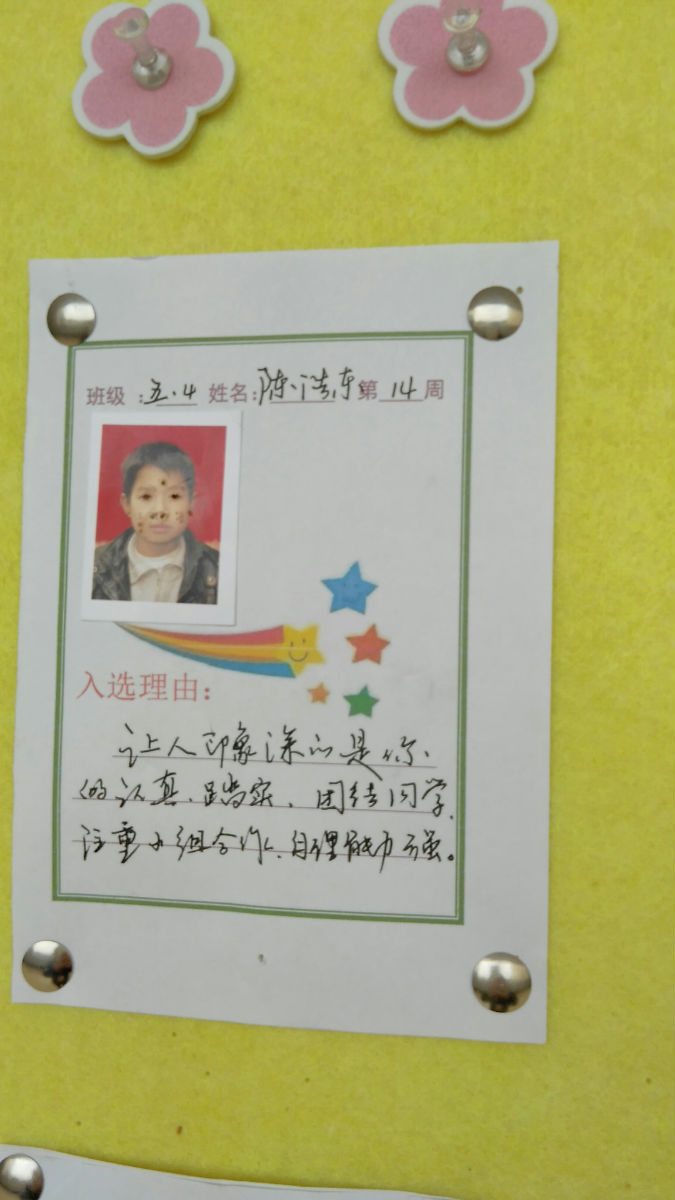 班级：五.4 姓名：陈浩东 第 14 周
入选理由：
让人印象深的是你
的认真、踏实、团结同学、
注重小组合作、自理能力强。